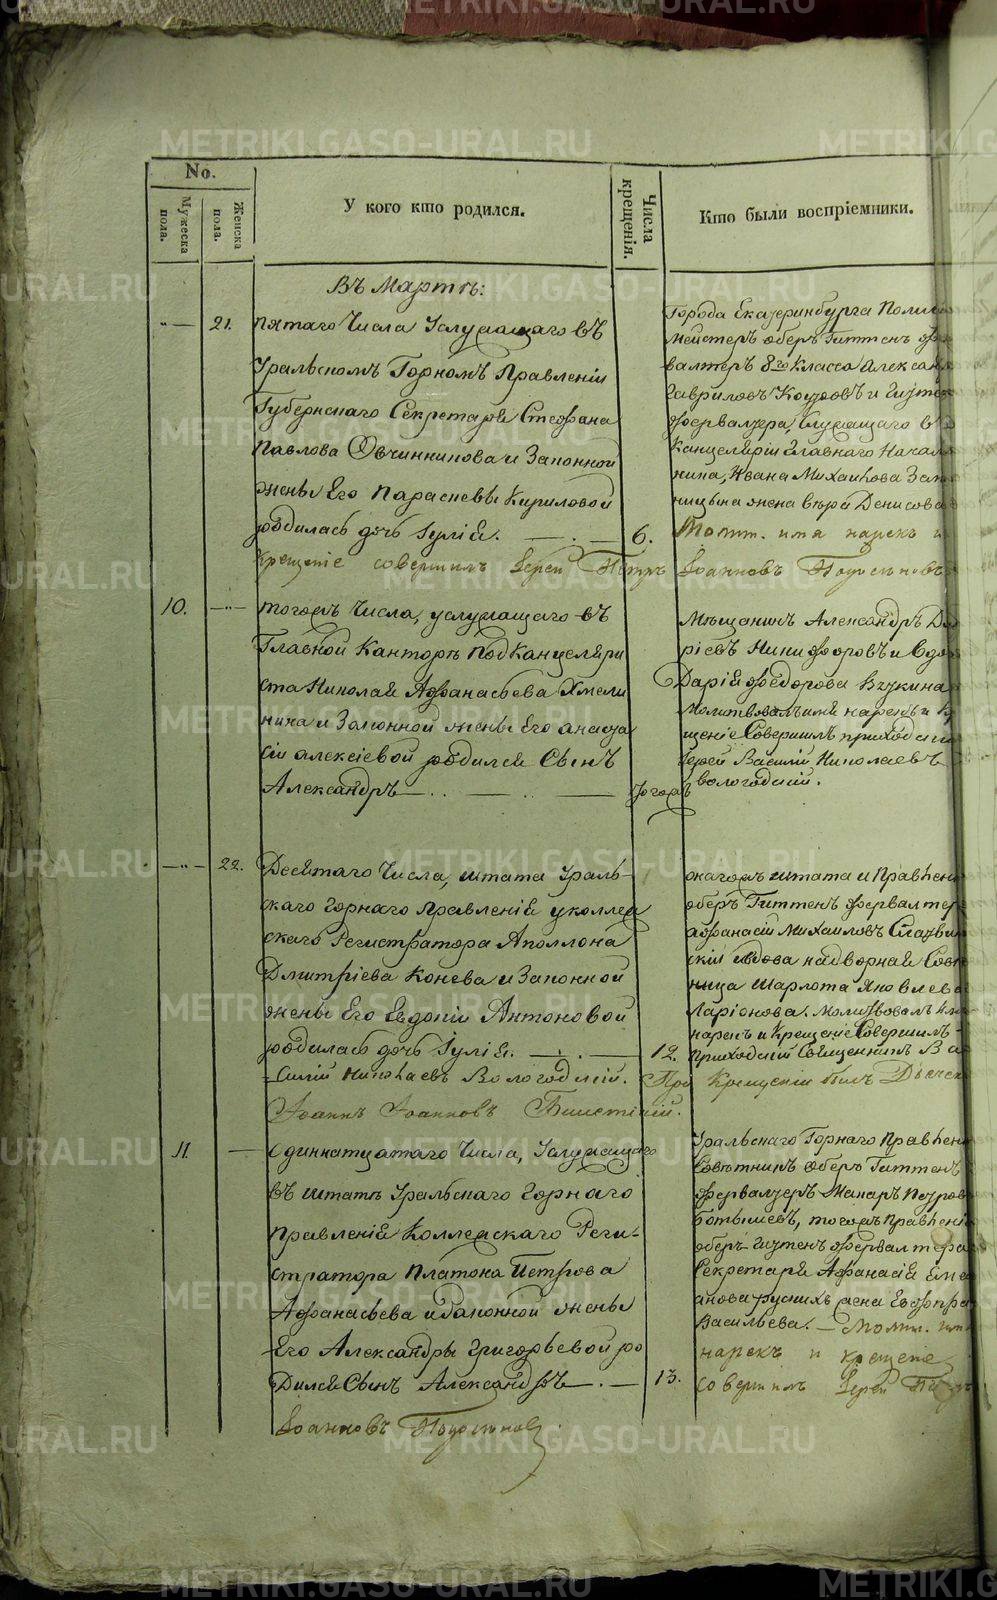 No.
Мужеска пола.
Женска пола.
У кого кто родился.
Числа крещенія.
Кто были воспріемники.
Въ Мартѣ:
21.
пятаго Числа Услужащаго въ
Уральскомъ Горномъ Правленіи
Губернскаго Секретаря Стефана
Павлова Овчинникова и Законной
жены Его Парасковьи Кириловой
родилась дочь Іулія.
6.
Крещеніе совершилъ Іерей Петръ
Города Екатеринбурга Поли
мейстеръ оберъ Гиттенъ
валтеръ 8го класса Алексан
Гавриловъ и Гитен
фервалтера, Служащаго в
Канцеляріи Главнаго Начал
ника, Ивана Михаилова
жена Вѣра Денисова
Молит. имя нарекъ и
Іоанновъ
10.
тогожъ Числа, услужащаго въ
Главной Канторѣ Подканцеляри
ста Николая Афанасьева Хмели
нина и Законной жены Его Анаста
сіи Алексіевой родился Сынъ
Александръ
тогожъ
Мѣщанинъ Александръ
ріевъ Никифоровъ и
Дарія Федорова
Молитвовалъ имя нарекъ и Кр
щеніе Совершилъ приходскій
Іерей Василій Николаевъ
вологодскій.
22.
Десятаго Числа, штата Ураль-
скаго Горнаго Правленія у коллеж
скаго Регистратора Аполлона
Дмитріева Конева и Законной
жены Его Евдокіи Антоновой
родилась дочь Іулія.
12.
силій Николаевъ Вологодскій. При Крещеніи былъ Дьячек
Іоаннъ Іоанновъ
онагожъ штата и Правлен
оберъ Гиттенъ фервалтер
Афанасій Михаиловъ
скій вдова надворная Совѣ
ница Шарлота Яковлева
Ларіонова. Молитвовалъ имя
нарекъ и Крещеніе Совершилъ
Приходскій Священникъ Ва
11.
Одиннатцатаго Числа, Услужащаго
въ штатѣ Уральскаго Горнаго
Правленія Коллежскаго Реги-
стратора Платона Петрова
Афанасьева и Законной жены
Его Александры Григорьевой ро
дился Сынъ Александръ
13.
Іоанновъ
Уральскаго Горнаго Правлен
Совѣтникъ оберъ Гиттенъ
фервалтеръ Макаръ Петров
Ботышевъ, тогожъ Правлені
оберъ Гитенъ фервалтера
Секретаря Афанасія
жена
Васильева. Молит. имя
нарекъ и крещеніе
совершилъ Іерей Петръ
METRIKI.GASO-URAL.RU